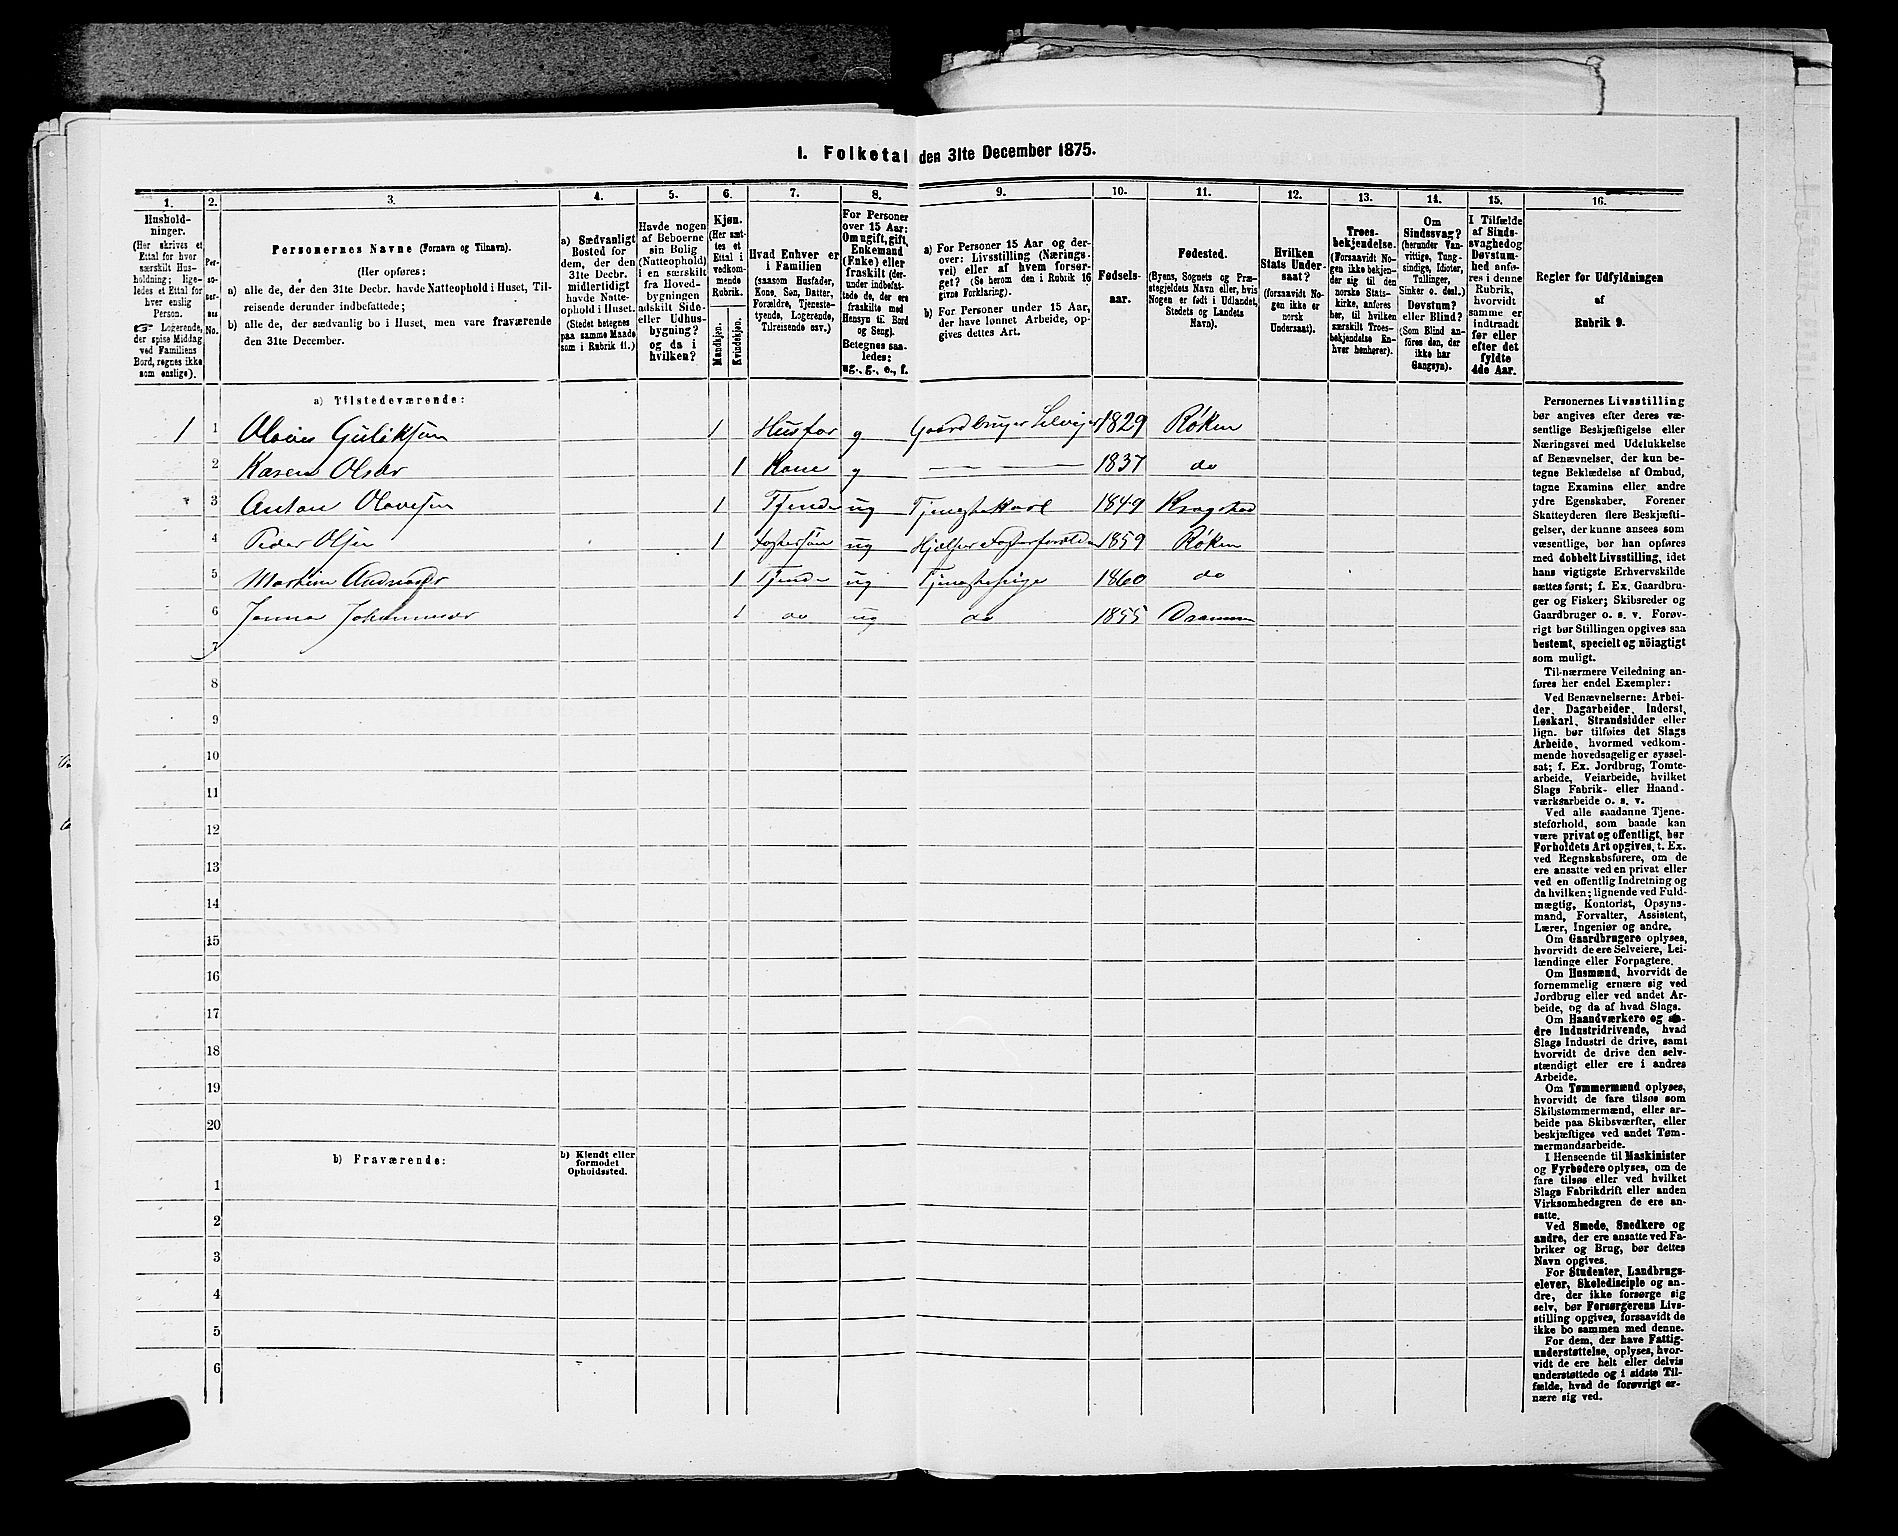 I. Folketal den 31te December 1875.
1. 2. 3. 4. 5. 6. 7. 8. 9. 10. 11. 12. 13. 14. 15. 16.
Hushold-
ninger.
(Her skrives et
Ettal for hver
særskilt Hus-
holdning; lige-
ledes et Ettal for
hver enslig
Person.
☞ Logerende,
der spise Middag
ved Familiens
Bord, regnes ikke
som enslige).
Per-
so-
ner-
nes
No.
Personernes Navne (Fornavn og Tilnavn).
(Her opføres:
a) alle de, der den 31te Decbr. havde Natteophold i Huset, Til-
reisende derunder indbefattede;
b) alle de, der sædvanlig bo i Huset, men vare fraværende
den 31te December.
a) Sædvanligt
Bosted for
dem, der den
31te Decbr.
midlertidigt
havde Natte-
ophold i Huset.
(Stedet betegnes
paa samme Maade
som i Rubrik 11.)
Havde nogen
af Beboerne
sin Bolig
(Natteophold)
i en særskilt
fra Hoved-
bygningen
adskilt Side-
eller Udhus-
bygning?
og da i
hvilken?
Kjøn.
(Her sæt-
tes et
Ettal i
vedkom-
mende
Rubrik.
Mandkjøn.
Kvindekjøn.
Hvad Enhver er
i Familien
(saasom Husfader,
Kone, Søn, Datter,
Forældre, Tjeneste-
tyende, Logerende,
Tilreisende osv.)
For Personer
over 15 Aar:
Om ugift, gift,
Enkemand
(Enke) eller
fraskilt (der-
under indbefat-
tede de, der ere
fraskilte med
Hensyn til Bord
og Seng).
Betegnes saa-
ledes:
ug., g., e., f.
a) For Personer 15 Aar og der-
over: Livsstilling (Nærings-
vei) eller af hvem forsør-
get? (Se herom den i Rubrik 16
givne Forklaring).
b) For Personer under 15 Aar,
der have lønnet Arbeide, op-
gives dettes Art.
Fødsels-
aar.
Fødested.
(Byens, Sognets og Præ-
stegjeldets Navn eller, hvis
Nogen er født i Udlandet,
Stedets og Landets
Navn).
Hvilken
Stats Under-
saat?
(forsaavidt No-
gen ikke er
norsk
Undersaat).
Troes-
bekjendelse.
(Forsaavidt No-
gen ikke bekjen-
der sig til den
norske Stats-
kirke, anføres
her, til hvilken
særskilt Troes-
bekjendelse En-
hver henhører).
Om
Sindssvag?
(herunder Van-
vittige, Tung-
sindige, Idioter,
Tullinger,
Sinker o. desl.)
Døvstum?
eller Blind?
(Som Blind an-
føres den, der
ikke har
Gangsyn).
I Tilfælde
af Sinds-
svaghed og
Døvstum-
hed anfø-
res i denne
Rubrik,
hvorvidt
samme er
indtraadt
før eller
efter det
fyldte
4de Aar.
Regler for Udfyldningen
af
Rubrik 9.
a) Tilstedeværende:
1 1 Olaves Guliksen 1 Husfar g Gaardbruger Selveier 1829 Røken
2 Karen Olsdr 1 Kone g — — — 1837 do
3 Anton Olavesen 1 Tjende ug Tjenestekarl 1849 Kragstad
4 Peder Olsen 1 Fostersøn ug Hjælper Fosterforældre 1859 Røken
5 Martine Andreasdr 1 Tjende ug Tjenestepige 1860 do
6 Johannesdr 1 do ug do 1855 Drammen
7
8
9
10
11
12
13
14
15
16
17
18
19
20
b) Fraværende:
b) Kjendt eller
formodet
Opholdssted.
1
2
3
4
5
6
Personernes Livsstilling
bør angives efter deres væ-
sentlige Beskjæftigelse eller
Næringsvei med Udelukkelse
af Benævnelser, der kun be-
tegne Beklædelse af Ombud,
tagne Examina eller andre
ydre Egenskaber. Forener
Skatteyderen flere Beskjæfti-
gelser, der kunne ansees som
væsentlige, bør han opføres
med dobbelt Livsstilling, idet
hans vigtigste Erhvervskilde
sættes først; f. Ex. Gaardbru-
ger og Fisker; Skibsreder og
Gaardbruger o. s. v. Forøv-
rigt bør Stillingen opgives saa
bestemt, specielt og nöiagtigt
som muligt.
Til nærmere Veiledning an-
føres her endel Exempler:
Ved Benævnelserne: Arbei-
der, Dagarbeider, Inderst,
Løskarl, Strandsidder eller
lign. bør tilføies det Slags
Arbeide, hvormed vedkom-
mende hovedsagelig er syssel-
sat; f. Ex. Jordbrug, Tomte-
arbeide, Veiarbeide, hvilket
Slags Fabrik- eller Haand-
værksarbeide o. s. v.
Ved alle saadanne Tjene-
steforhold, som baade kan
være privat og offentligt, bør
Forholdets Art opgives, t. Ex.
ved Regnskabsførere, om de
ere ansatte ved en privat eller
ved en offentlig Indretning og
da hvilken; lignende ved Fuld-
mægtig, Kontorist, Opsyns-
mand, Forvalter, Assistent,
Lærer, Ingeniør og andre.
Om Gaardbrugere oplyses,
hvorvidt de ere Selveiere, Lei-
lændinge eller Forpagtere.
Om Husmænd, hvorvidt de
fornemmelig ernære sig ved
Jordbrug eller ved andet Ar-
beide, og da af hvad Slags.
Om Haandværkere og an-
dre Industridrivende, hvad
Slags Industri de drive, samt
hvorvidt de drive den selv-
stændigt eller ere i andres
Arbeide.
Om Tømmermænd oplyses,
hvorvidt de fare tilsøs som
Skibstømmermænd, eller ar-
beide paa Skibsværfter, eller
beskjæftiges ved andet Tøm-
mermandsarbeide.
I Henseende til Maskinister
og Fyrbødere oplyses, om de
fare tilsøs eller ved hvilket
Slags Fabrikdrift eller anden
Virksomhedsgren de ere an-
satte.
Ved Smede, Snedkere og
andre, der ere ansatte ved Fa-
briker og Brug, bør dettes
Navn opgives.
For Studenter, Landbrugs-
elever, Skoledisciple og an-
dre, der ikke forsørge sig
selv, bør Forsørgerens Livs-
stilling opgives, forsaavidt de
ikke bo sammen med denne.
For dem, der have Fattig-
understøttelse, oplyses, hvor-
vidt de ere helt eller delvis
understøttede og i sidste Til-
fælde, hvad de forøvrigt er-
nære sig ved.